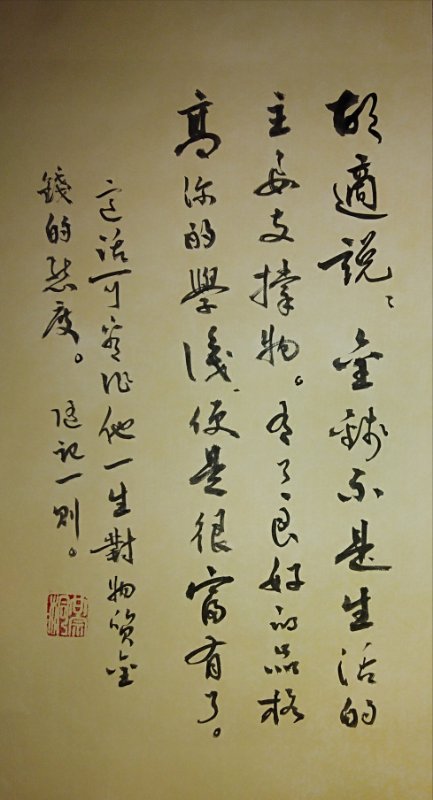 胡適說、金錢不是生活的
主要支撐物。有了良好的品格
高深的學識、便是很富有了。
這話可看作他一生對物質金
錢的態度。隨記一則。